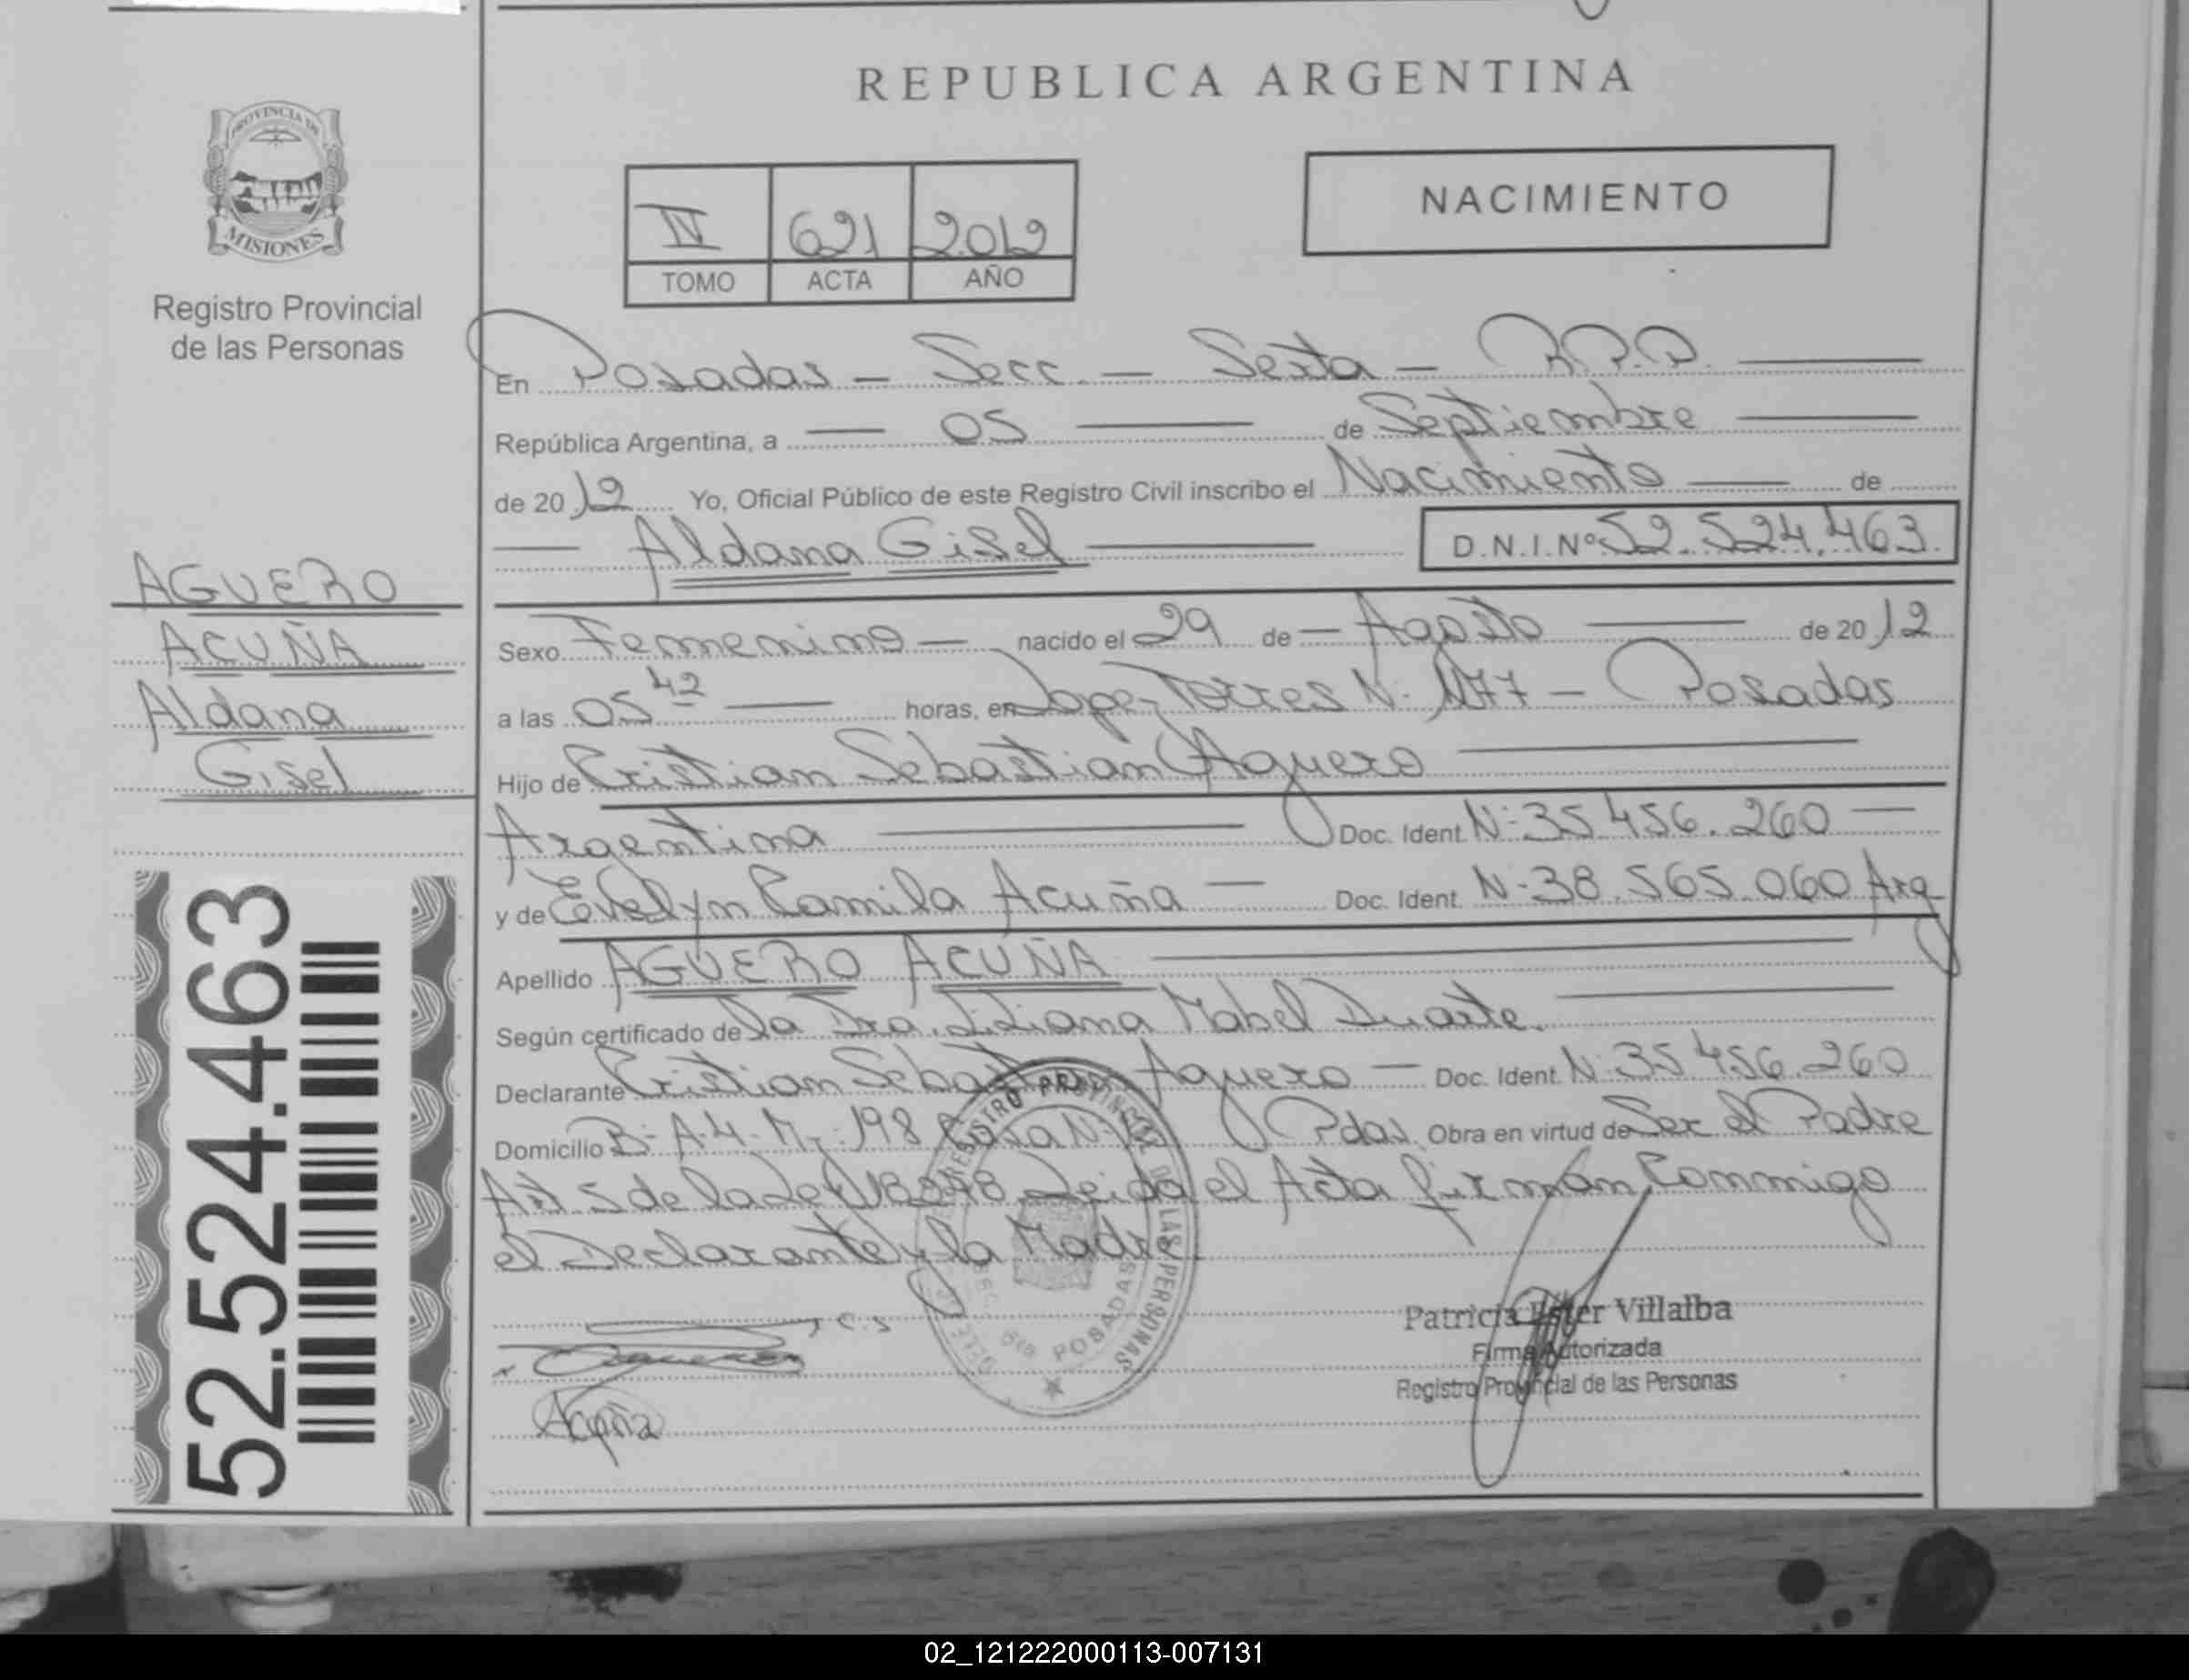 REPUBLICA ARGENTINA
PROVINCIA DE
MISIONES
Registro Provincial
de las Personas
IV 621 2012
TOMO ACTA AÑO
NACIMIENTO
En Posadas - Secc. - Sexta - R.P.P.
República Argentina, a 05 de Septiembre
de 2012 Yo, Oficial Público de este Registro Civil inscribo el Nacimiento de
Aldana Gisel D.N.I.Nº 52.524.463
AGUERO
ACUÑA
Aldana
Gisel
Sexo Femenino nacido el 29 de Agosto de 2012
a las 05 42 horas, en Lopez Torres N. 1177 - Posadas
Hijo de Cristian Sebastian Aguero
Argentina Doc. Ident. N: 35 456.260
y de Evelyn Camila Acuña Doc. Ident. N-38.565.060 Arg
Apellido AGUERO ACUÑA
Según certificado de la Dra. Liliana Mabel Duarte.
Declarante Cristian Sebastian Aguero Doc. Ident. N: 35 456.260
Domicilio B- A-4- 198 Casa Pdas. Obra en virtud de Ser el Padre
Art 5 de la Ley 18248 Leida el Acta firman Conmigo
el Declarante y la Madre.
REGISTRO PROVINCIAL DE LAS PERSONAS
POSADAS
Acuña
Patricia Ester Villalba
Firma Autorizada
Registro Provincial de las Personas
52.524.463
02_121222000113-007131